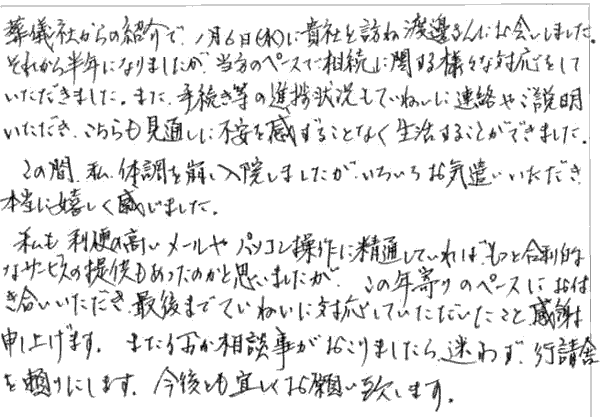 葬儀社からの紹介で、1月6日(水)に貴社を訪ね渡邊さんにお会いしました。
それから半年になりましたが、当方のペースで相続に関する様々な対応をして
いただきました。また、手続き等の進捗状況もていねいに連絡やご説明
いただき、こちらも見通しに不安を感ずることなく生活することができました。
この間、私、体調を崩し入院しましたが、いろいろお気遣いいただき
本当に嬉しく感じました。
私も利便の高いメールやパソコン操作に精通していれば、もっと合利的な
なサービスの提供もあったのかと思いましたが、この年寄りのペースにおつ
き合いいただき、最後までていねいに対応していただいたこと感謝
申し上げます。また何か相談事がおこりましたら、迷わず、行請舎
を頼りにします。今後とも宜しくお願い致します。